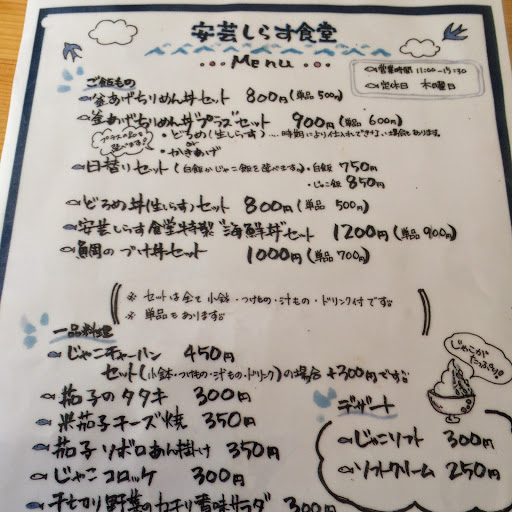 安芸しらす食堂
...Menu...
営業時間 11:00~15:30
定休日 木曜日
ご飯もの
釜あげちりめん丼セット 800円(単品500円)
釜あげちりめん丼"プラス"セット 900円(単品600円)
プラスの品を選べます!
・どろめ(生しらす)....時期により仕入れできない場合もあります。
or
・かきあげ
日替りセット(白飯かじゃこ飯を選べます。)・白飯 750円
・じゃこ飯 850円
どろめ丼(生しらす)セット 800円(単品500円)
安芸しらす食堂特製"海鮮丼"セット 1200円(単品900円)
鯛のづけ丼セット 1000円(単品700円)
※ セットは全て小鉢・つけもの・汁もの・ドリンク付です
※ 単品もあります
一品料理
じゃこチャーハン 450円
セット(小鉢・つけもの・汁もの・ドリンク)の場合 +300円です
茄子のタタキ 300円
米茄子チーズ焼 350円
茄子ソボロあん掛け 350円
じゃこコロッケ 300円
千切り野菜のカチリ香味サラダ 300円
じゃこがたっぷり!
デザート
じゃこソフト 300円
ソフトクリーム 250円